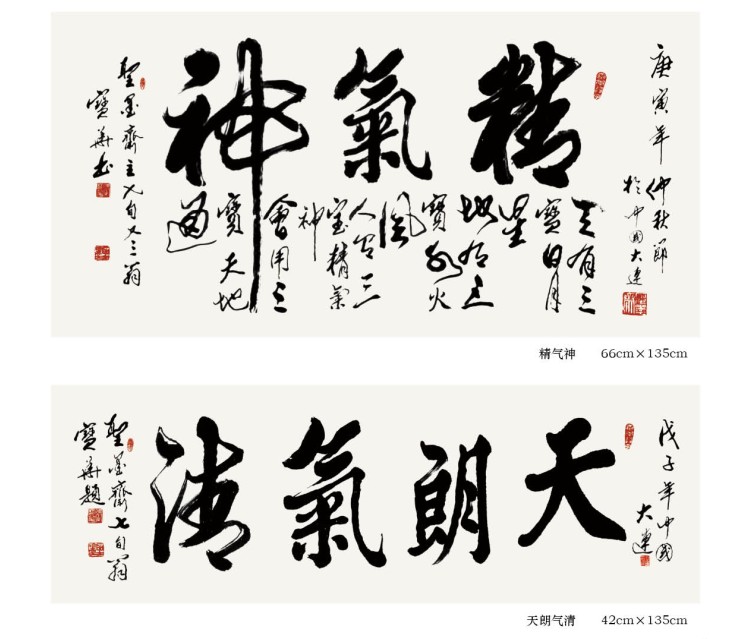 庚寅年仲秋節
於中國大連
精氣神
天有三
寶日月
星
地有三
寶水火
風
人有三
寶精氣
神
會用三
寶天地
通
聖墨齋主七旬又三翁
寶華書
精气神 66cm×135cm
戊子年中國
大連
天朗氣清
聖墨齋七旬翁
寶華題
天朗气清 42cm×135cm